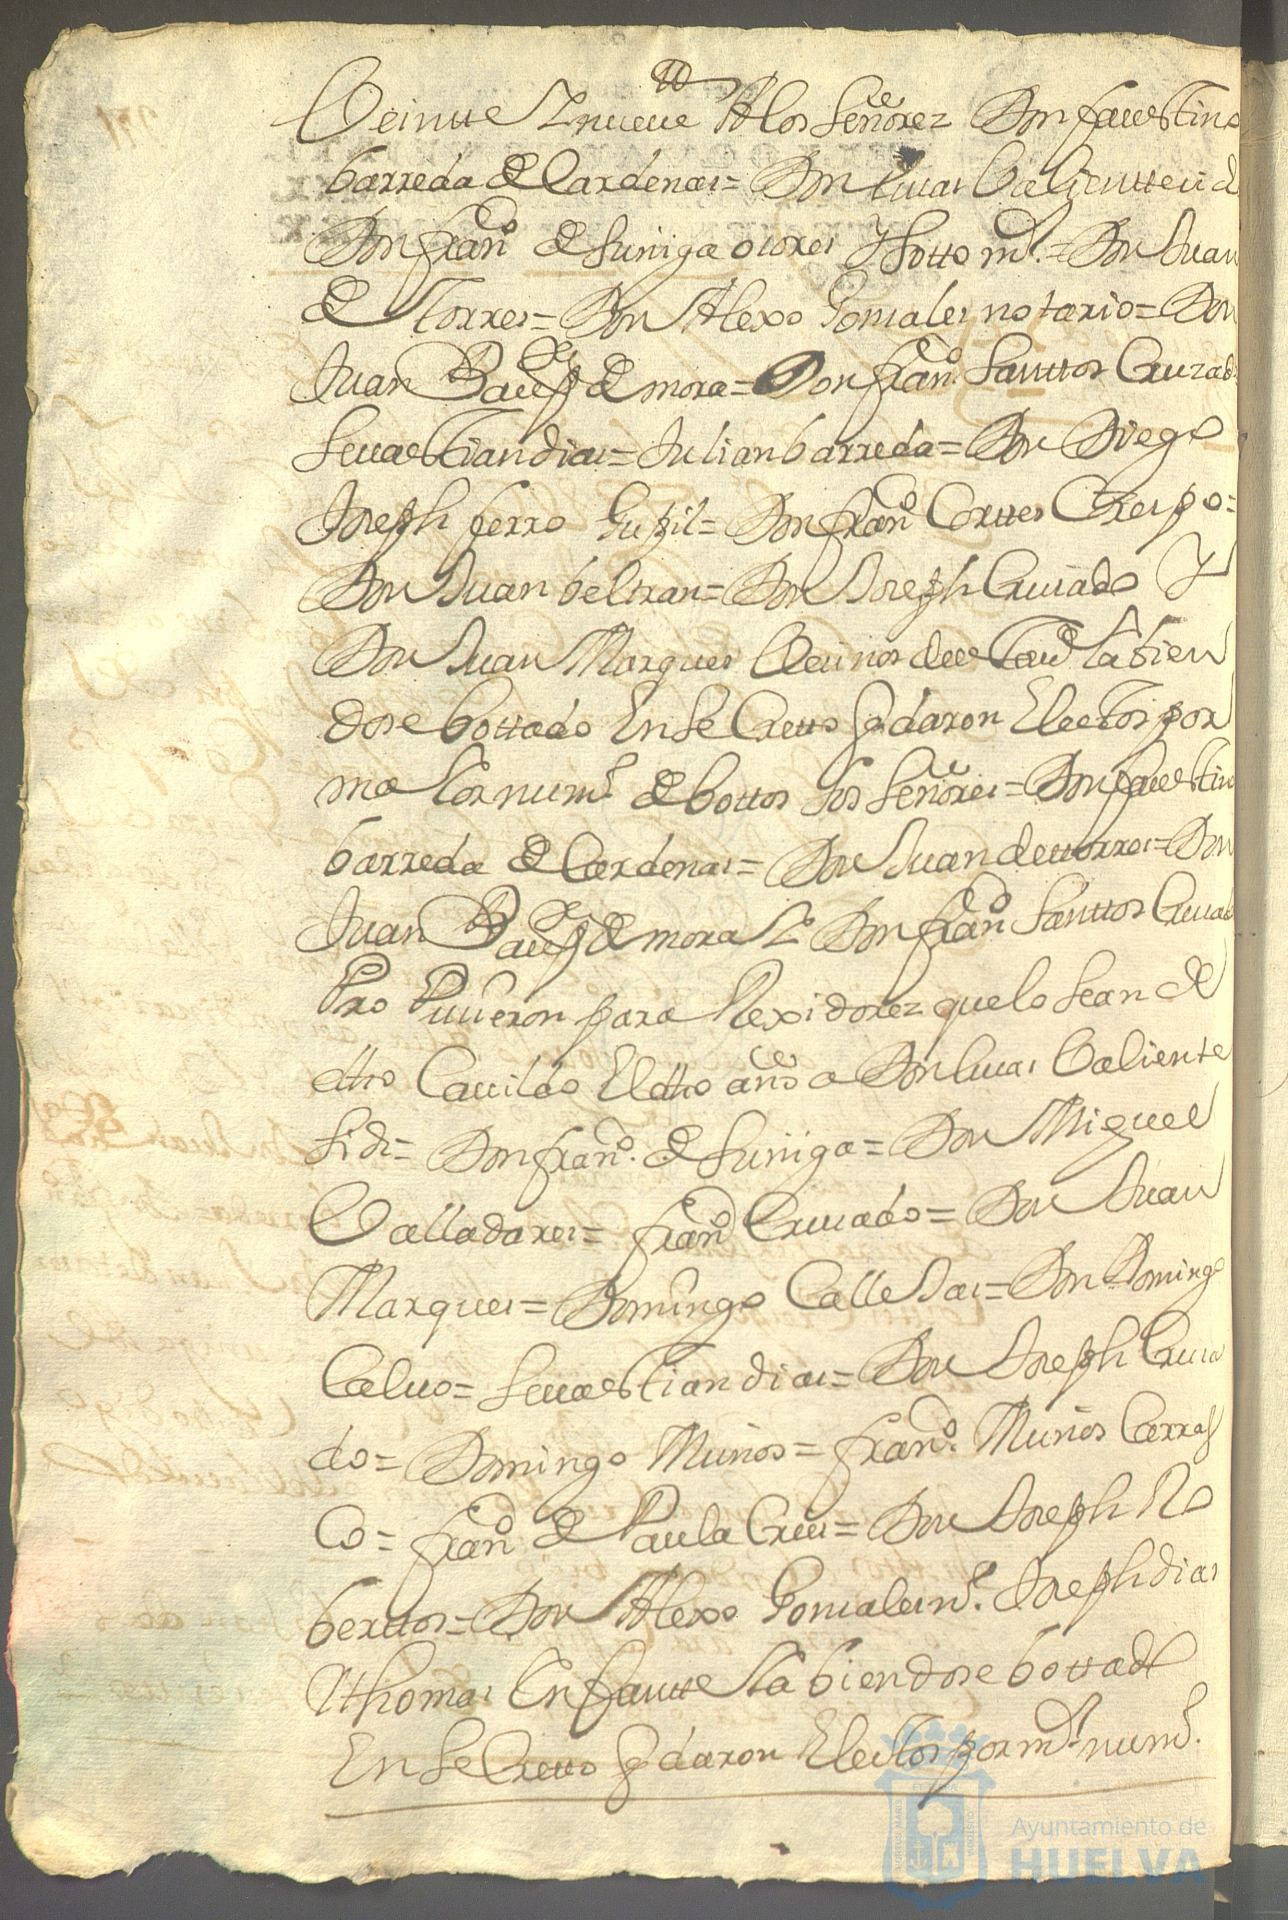 Veintte Y nueve A los Señorez Don faustino
barreda de Cardenas = Don lucas Valientte
Don franco de suniga otores Y sotto mr = Don Juan
de Torres = Don Alexo Gonsales notario = Don
Juan de mora = Don franco Santtos Cruzado
sevastian dias = Julian barreda = Don Diego
Joseph ferro = Don franco Corttes Crespo =
Don Juan beltran = Don Joseph Crusado Y
Don Juan Marques Vecinos Habien
dose bottado En se Cretto qdaron Electos por
maior numo de bottos los Señores = Don faustino
barreda de Cardenas = Don Juan de ttorres = Don
Juan de mora Y Don franco Santtos Crusado
Pro Puvieron para Rexidorez que lo sean de
dho Cavildo El dho año a Don lucas Valiente
sidi = Don franco de suniga = Don Miguel
Valladares = franco Crusado = Don Juan
Marques = Domingo Calle Jas = Don Domingo
Calvo = sevastian dias = Don Joseph Crusa
do = Domingo Muños = franco Muños Carras
Co = franco de Paula Crus = Don Joseph Ro
berttos = Don Alexo Gonsales no Joseph dias
Y thomas Enfantte Habiendose bottado
En se Cretto qdaron Electos por mr numo
Ayuntamiento de
HUELVA